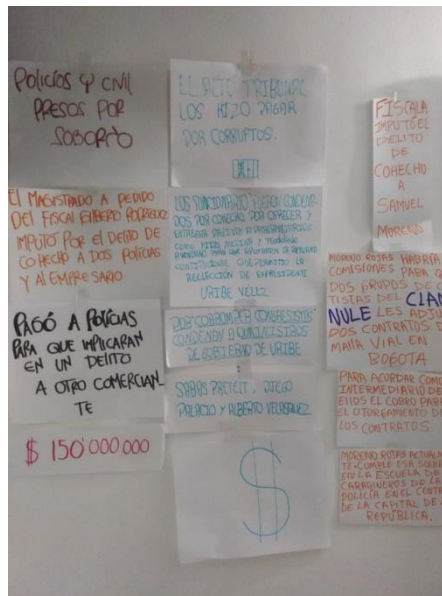 POLICÍAS Y CIVIL
PRESOS POR
SOBORNO
El MAGISTRADO A PEDIDO
DEL FISCAL EVERTO RODRIGUEZ
IMPUTÓ POR EL DELITO DE
COHECHO A DOS POLICÍAS
Y Al EMPRESARIO
PAGÓ A POLICÍAS
PARA QUE IMPLICARAN
EN UN DELITO
A OTRO COMERCIAN
TE
$ 150'000 000
EL ALTO TRIBUNAL
LOS HIZO PAGAR
POR CORRUPTOS.
LOS FUNCIONARIOS FUERON CONDENA-
DOS POR COHECHO POR OFRECER Y
COMO YIDIS MEDINA Y TEODOLINDO
REELECCIÓN DE EXPRESIDENTE
URIBE VELEZ
POR CORROMPER CONGRESISTAS
CONDENAN A QUINCE
DE GOBIERNO DE URIBE
SABAS PRETELT, DIEGO
PALACIO Y ALBERTO VELASQUEZ
$
FISCALA
IMPUTÓ EL
DELITO
DE
COHECHO
A
SAMUEL
MORENO
MORENO ROJAS HABRÍA
COMISIONES PARA
DOS GRUPOS DE
TISTAS DEL CLAN
NULE LES ADJU
DOS CONTRATOS
MALLA VIAL EN
BOGOTA
PARA ACORDAR COM
INTERMEDIARIO DE
ELLOS EL COBRO PARA
EL OTORGAMIENTO DE
LOS CONTRATOS
MORENO ROJAS ACTUALM
TE CUMPLE ESA
EN LA ESCUELA DE
CARABINEROS DE LA
POLICÍA EN EL CENT
DE LA CAPITAL DE
REPÚBLICA.